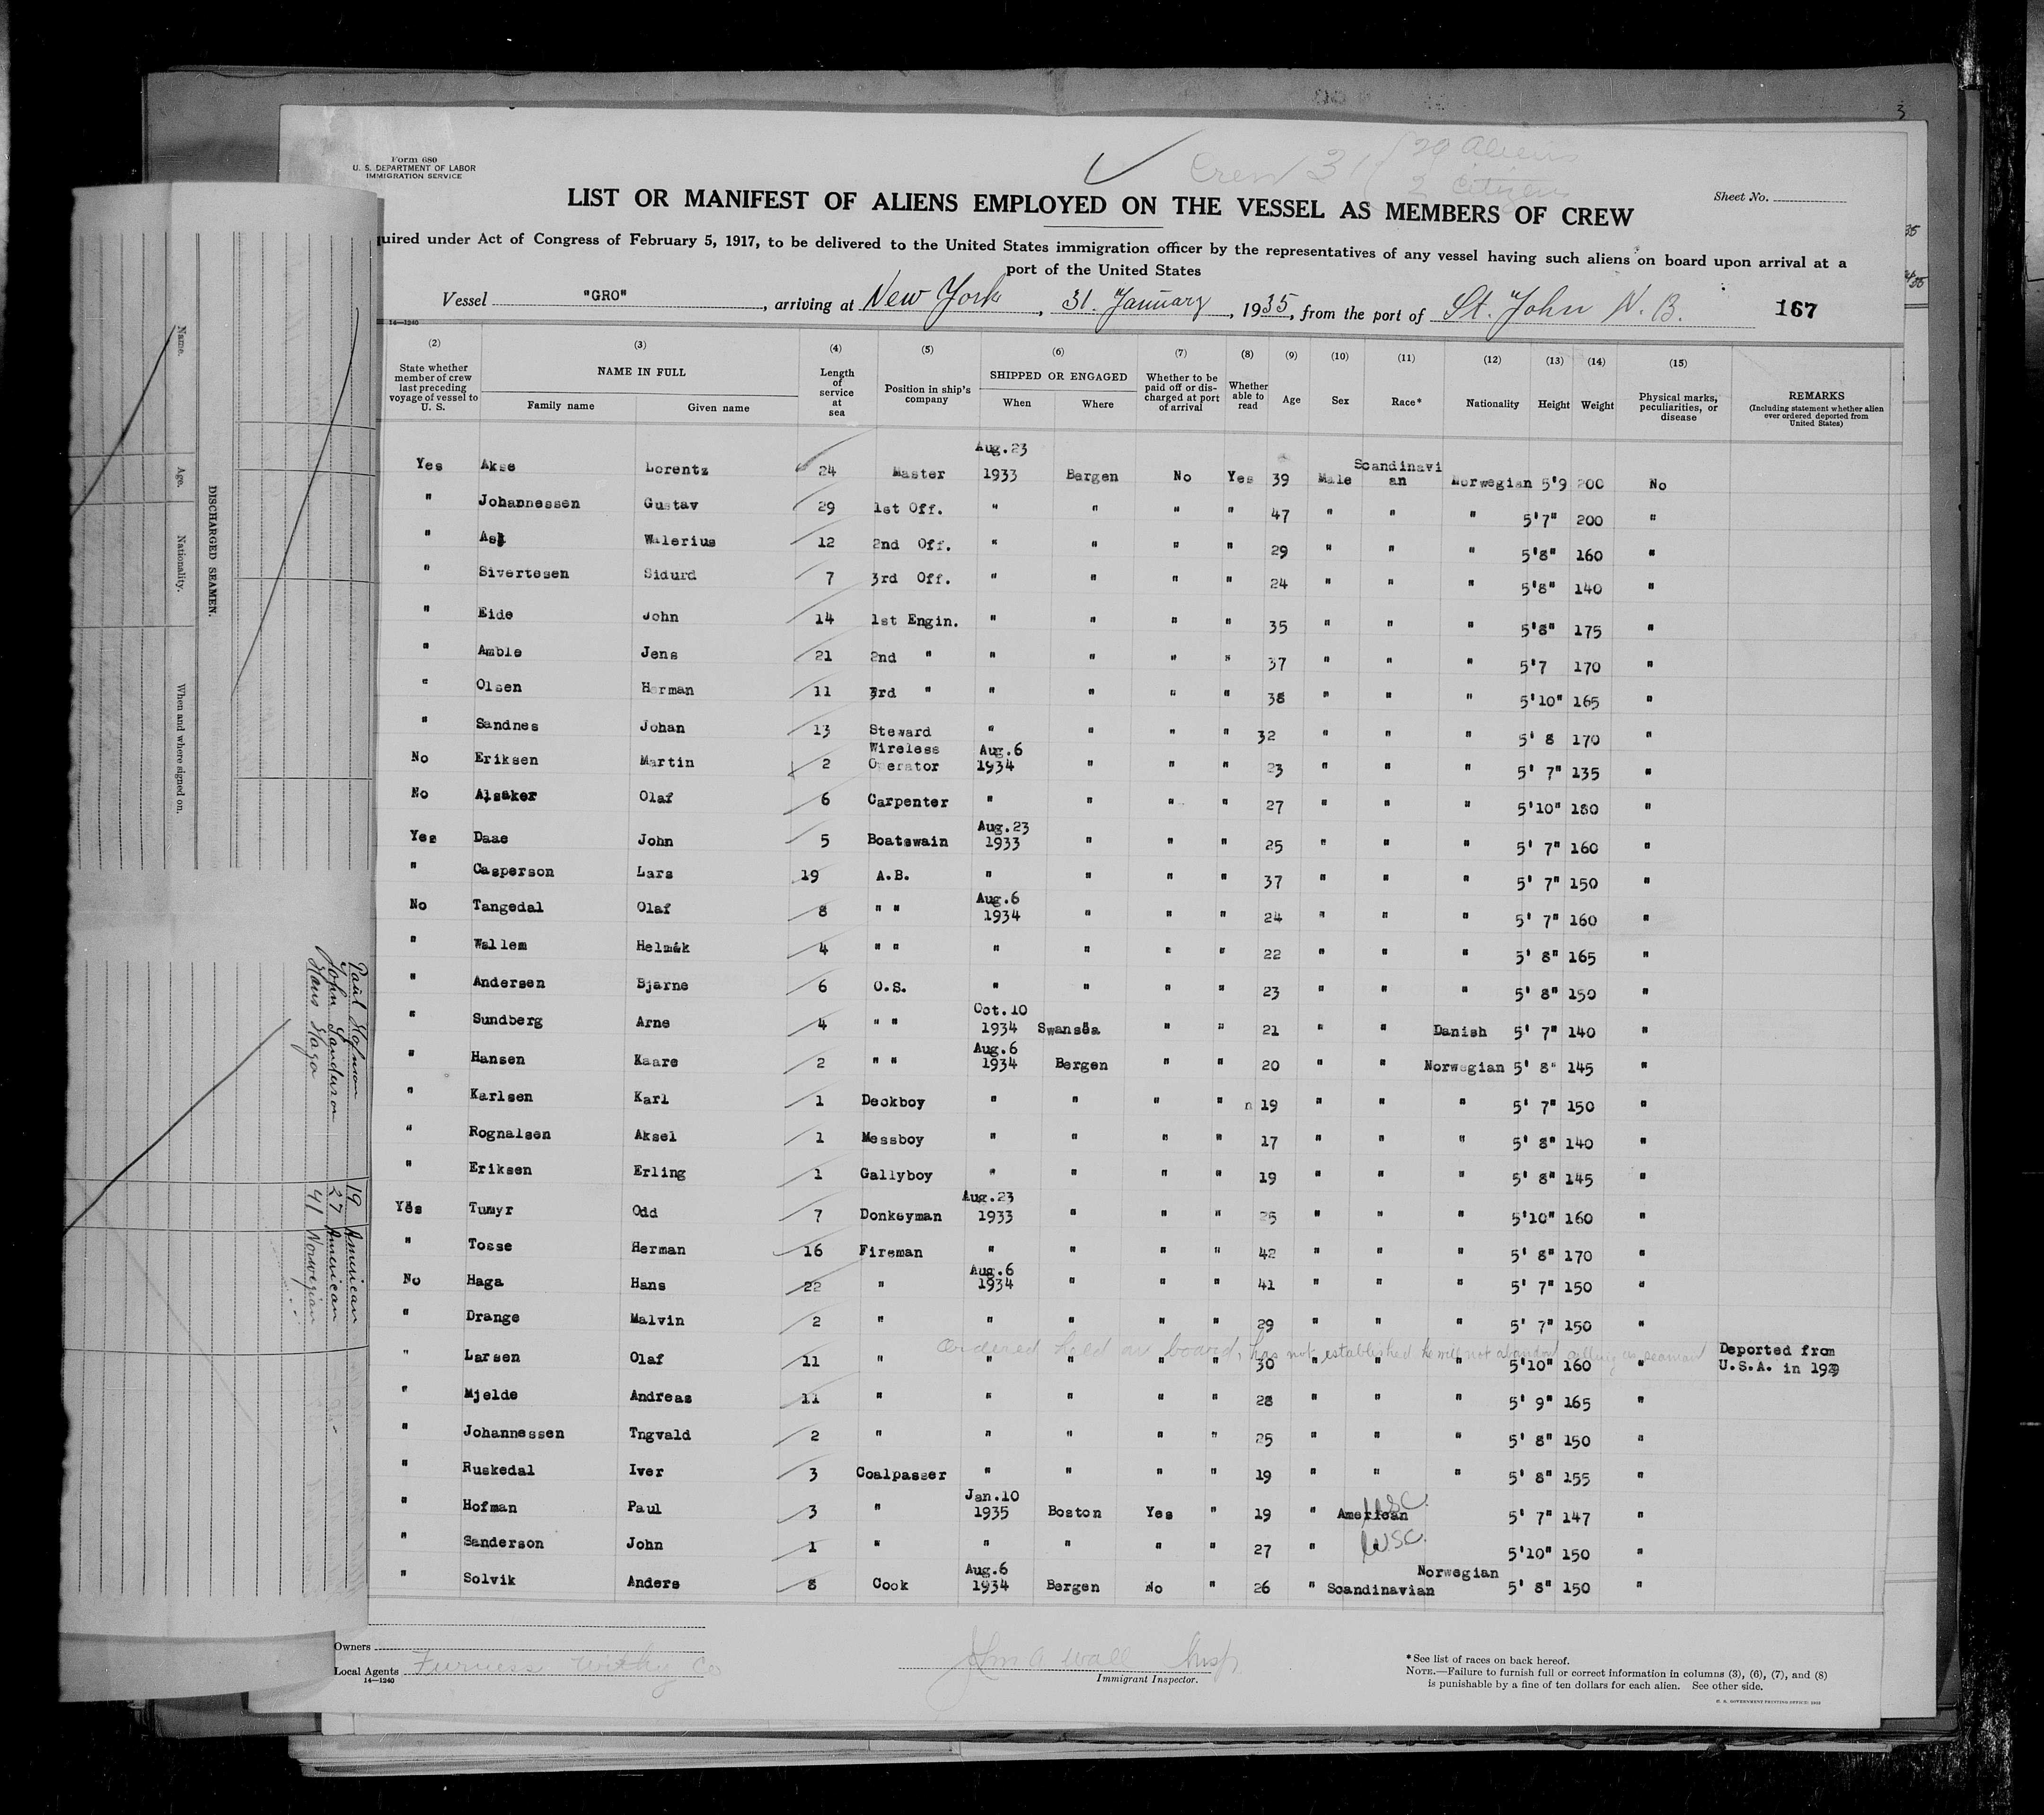 3
Crew 31 (29 Aliens
2 Citizens
Form 680
U. S. DEPARTMENT OF LABOR
IMMIGRATION SERVICE
Sheet No.
LIST OR MANIFEST OF ALIENS EMPLOYED ON THE VESSEL AS MEMBERS OF CREW
uired under Act of Congress of February 5, 1917, to be delivered to the United States immigration officer by the representatives of any vessel having such aliens on board upon arrival at a
port of the United States
Vessel "GRO", arriving at New York, 31. January, 1935, from the port of St. John N. B. 167
14—1240
(2) (3) (4) (5) (6) (7) (8) (9) (10) (11) (12) (13) (14) (15)
State whether member of crew last preceding voyage of vessel to U. S. NAME IN FULL Family name Given name Length of service at sea Position in ship's company SHIPPED OR ENGAGED When Where Whether to be paid off or discharged at port of arrival Whether able to read Age Sex Race* Nationality Height Weight Physical marks, peculiarities, or disease REMARKS (Including statement whether alien ever ordered deported from United States)
Yes Akse Lorentz 24 Master Aug.23 1933 Bergen No Yes 39 Male Scandinavian Norwegian 5'9 200 No
" Johannessen Gustav 29 1st Off. " " " " 47 " " " 5'7" 200 "
" Ask Walerius 12 2nd Off. " " " " 29 " " " 5'8" 160 "
" Sivertesen Sidurd 7 3rd Off. " " " " 24 " " " 5'8" 140 "
" Eide John 14 1st Engin. " " " " 35 " " " 5'8" 175 "
" Amble Jens 21 2nd " " " " " 37 " " " 5'7 170 "
" Olsen Herman 11 3rd " " " " " 38 " " " 5'10" 165 "
" Sandnes Johan 13 Steward " " " " 32 " " " 5' 8 170 "
No Eriksen Martin 2 Wireless Operator Aug.6 1934 " " " 23 " " " 5' 7" 135 "
No Alsaker Olaf 6 Carpenter " " " " 27 " " " 5'10" 180 "
Yes Daae John 5 Boatswain Aug.23 1933 " " " 25 " " " 5' 7" 160 "
" Casperson Lars 19 A.B. " " " " 37 " " " 5' 7" 150 "
No Tangedal Olaf 8 " " Aug.6 1934 " " " 24 " " " 5' 7" 160 "
" Wallem Helmik 4 " " " " " " 22 " " " 5' 8" 165 "
" Andersen Bjarne 6 O.S. " " " " 23 " " " 5' 8" 150 "
" Sundberg Arne 4 " " Oct.10 1934 Swansea " " 21 " " Danish 5' 7" 140 "
" Hansen Kaare 2 " " Aug.6 1934 Bergen " " 20 " " Norwegian 5' 8" 145 "
" Karlsen Karl 1 Deckboy " " " " n 19 " " " 5' 7" 150 "
" Rognalsen Aksel 1 Messboy " " " " 17 " " " 5' 8" 140 "
" Eriksen Erling 1 Gallyboy " " " " 19 " " " 5' 8" 145 "
Yes Tumyr Odd 7 Donkeyman Aug.23 1933 " " " 25 " " " 5'10" 160 "
" Tosse Herman 16 Fireman " " " " 42 " " " 5' 8" 170 "
No Haga Hans 22 " Aug.6 1934 " " " 41 " " " 5' 7" 150 "
" Drange Malvin 2 " " " " " 29 " " " 5' 7" 150 "
Ordered held on board, has not established he will not abandon calling as seaman
" Larsen Olaf 11 " " " " " 30 " " " 5'10" 160 " Deported from U.S.A. in 1929
" Mjelde Andreas 11 " " " " " 28 " " " 5' 9" 165 "
" Johannessen Tngvald 2 " " " " " 25 " " " 5' 8" 150 "
" Ruskedal Iver 3 Coalpasser " " " " 19 " " " 5' 8" 155 "
" Hofman Paul 3 " Jan.10 1935 Boston Yes " 19 " American U.S.C. 5' 7" 147 "
" Sanderson John 1 " " " " " 27 " " U.S.C. 5'10" 150 "
" Solvik Anders 8 Cook Aug.6 1934 Bergen No " 26 " Scandinavian Norwegian 5' 8" 150 "
Owners
Local Agents Furness Withy Co
14—1240
John A Wall Insp.
Immigrant Inspector.
* See list of races on back hereof.
NOTE.—Failure to furnish full or correct information in columns (3), (6), (7), and (8)
is punishable by a fine of ten dollars for each alien. See other side.
U. S. GOVERNMENT PRINTING OFFICE
DISCHARGED SEAMEN.
Name. Age. Nationality. When and where signed on.
Paul Hofman 19 American
John Sanderson 27 American
Hans Haga 41 Norwegian